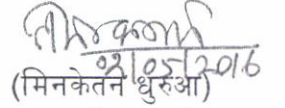 02/05/2016
(मिनकेतन धुरुआ)